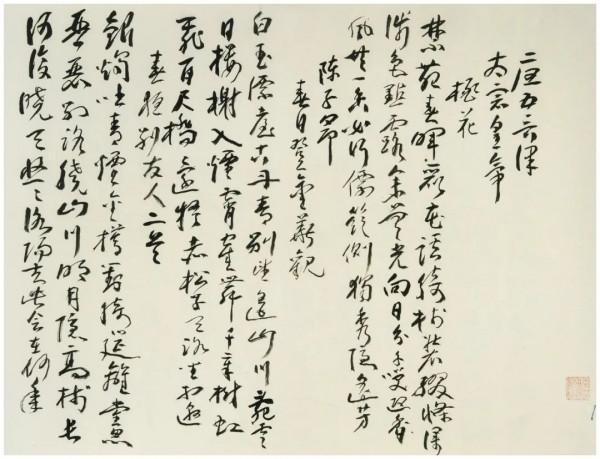 唐五言律
太宗皇帝
桃花
禁苑春暉麗花蹊綺樹裝綴條深
淺色點露參差光向日分千笑迎
風共一香如何僊嶺側獨秀隱遥芳
陳子昂
春日登金華觀
白玉僊臺古丹青別望遥山川亂雲
日樓榭入煙霄鶴舞千年樹虹
飛百尺橋還疑赤松子天路坐相邀
春夜別友人二首
銀燭吐青煙金樽對綺筵離堂思
琴瑟別路繞山川明月隱高樹長
河沒曉天悠悠洛陽去此會在何年